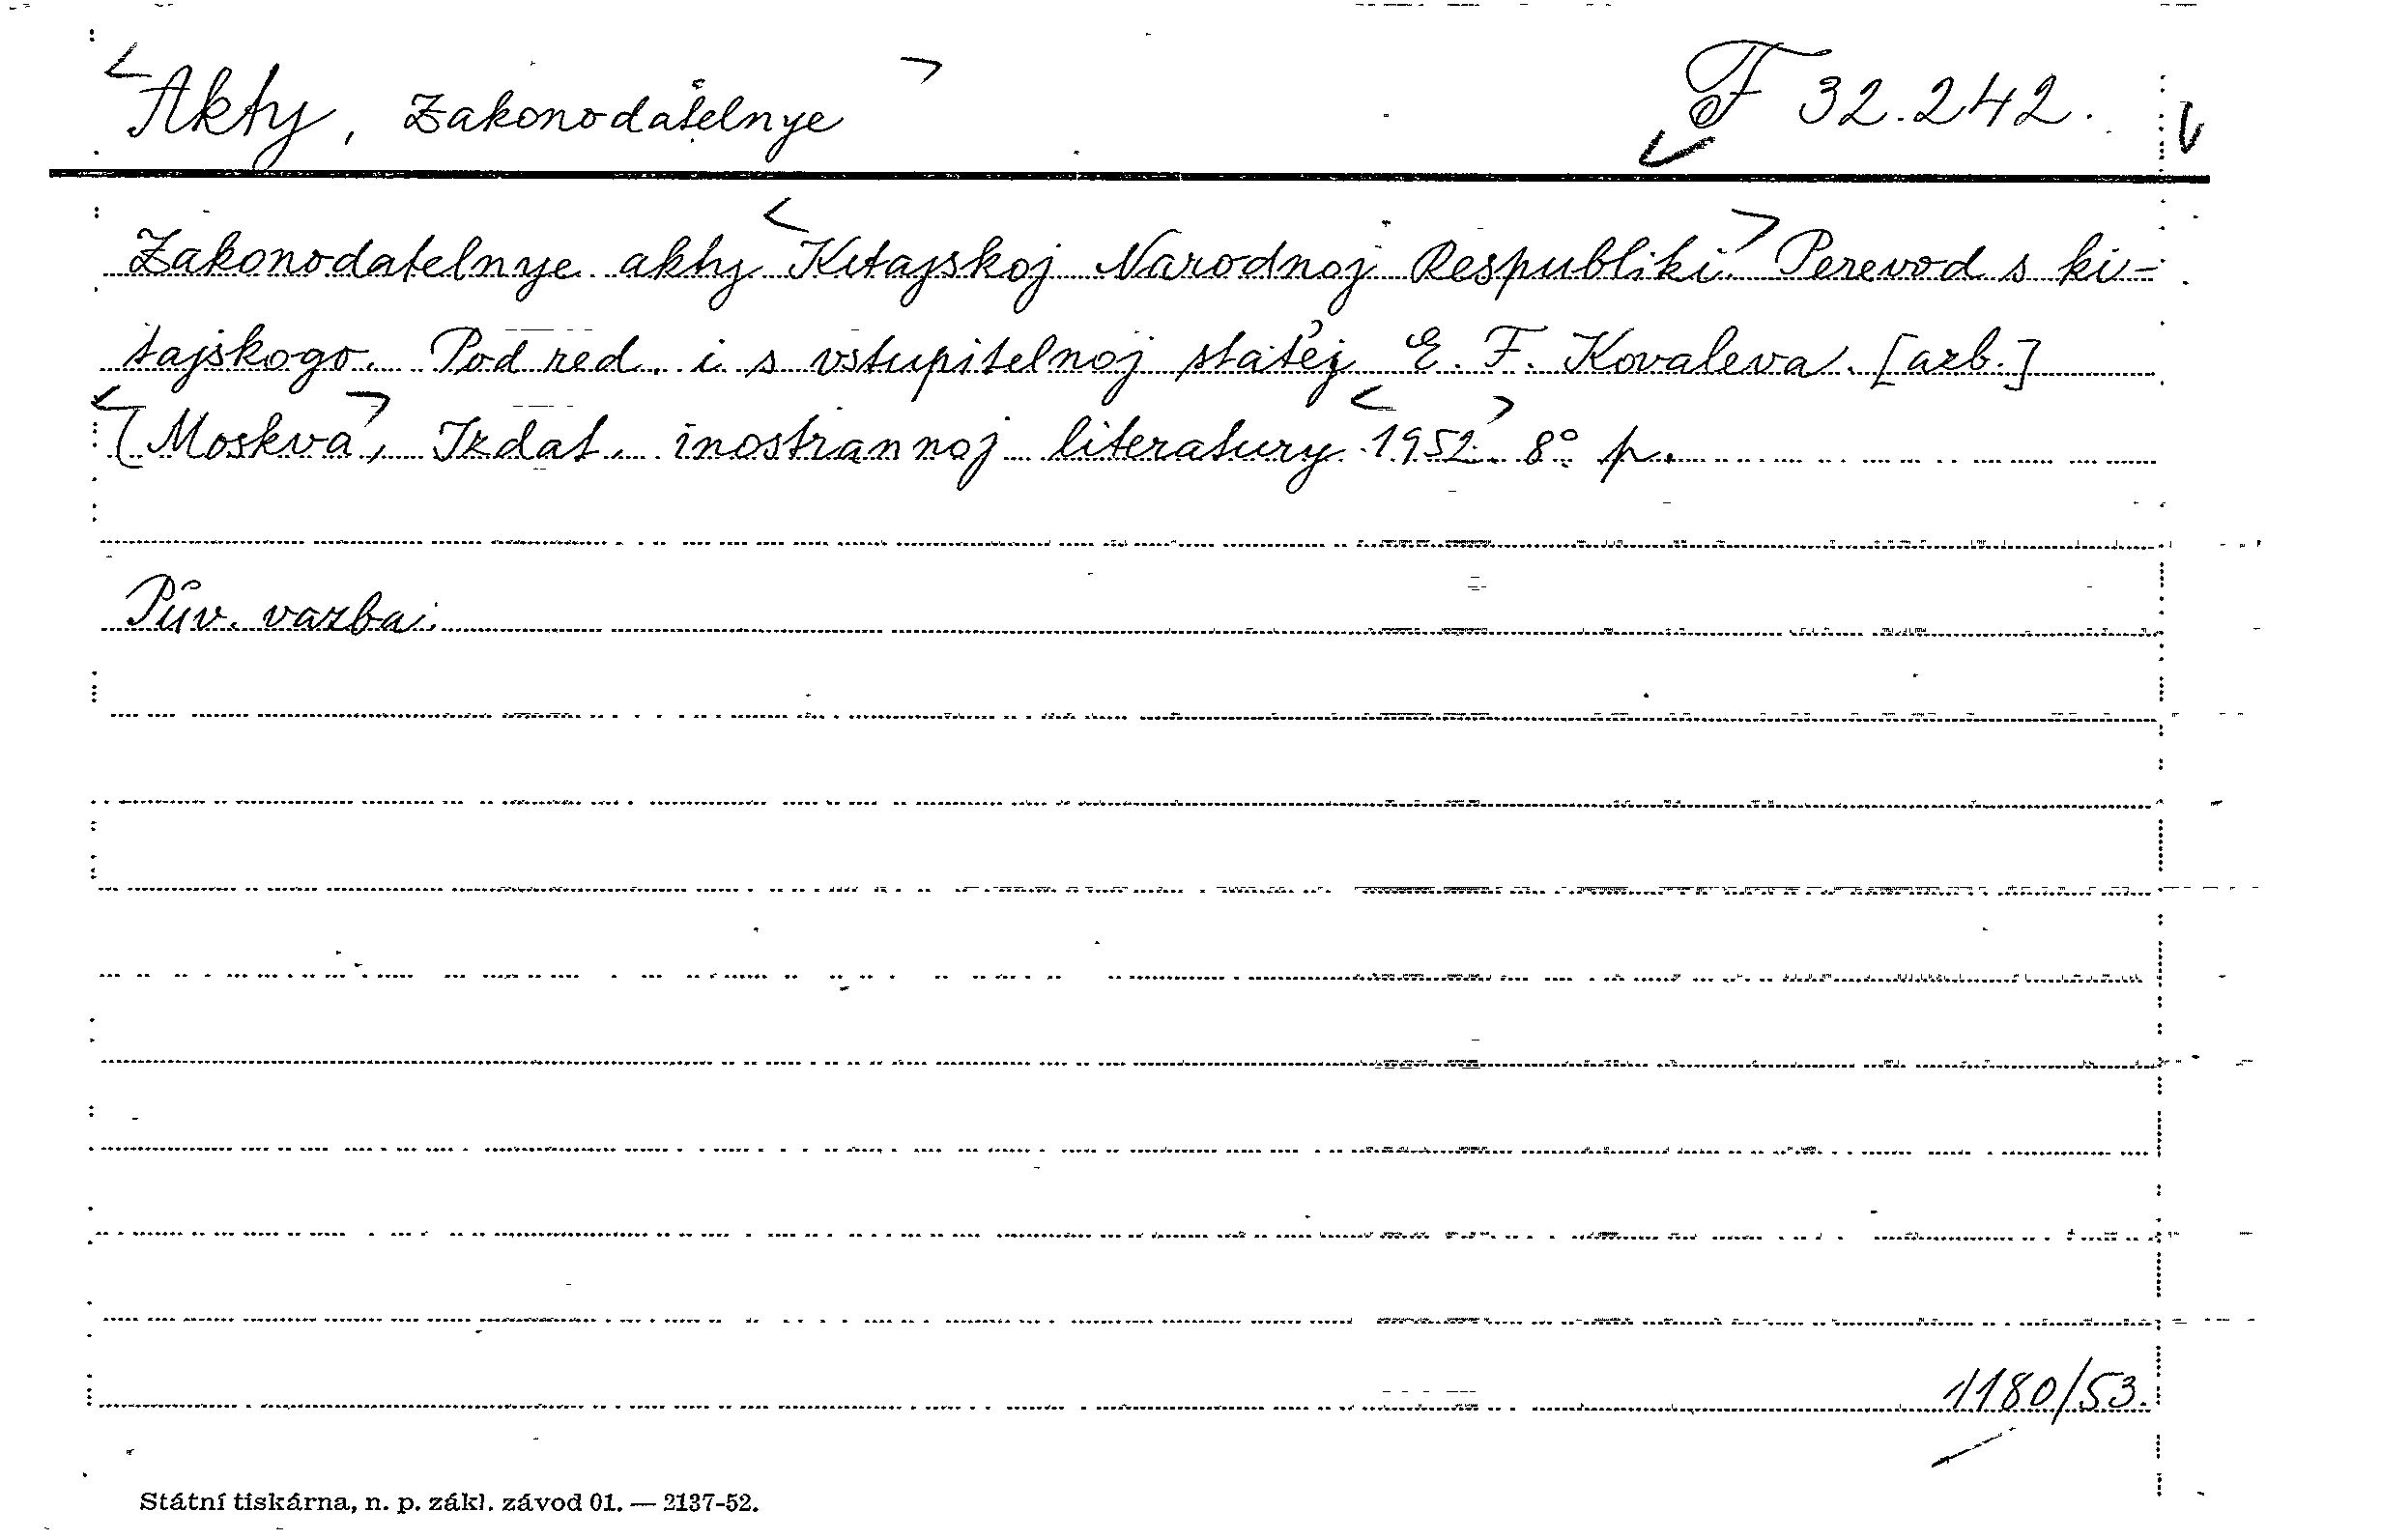 Akty, Zakonodatelnye F 32.242.
Zakonodatelnye akty Kitajskoj Narodnoj Respubliki. Perevod s ki-
tajskogo. Pod red. i s vstupitelnoj statěj E. F. Kovaleva. [azb.]
(Moskva), Izdat. inostrannoj literatury 1952. 8° p.
Pův. vazba.
1180/53.
Státní tiskárna, n. p. zákl. závod 01. — 2137-52.